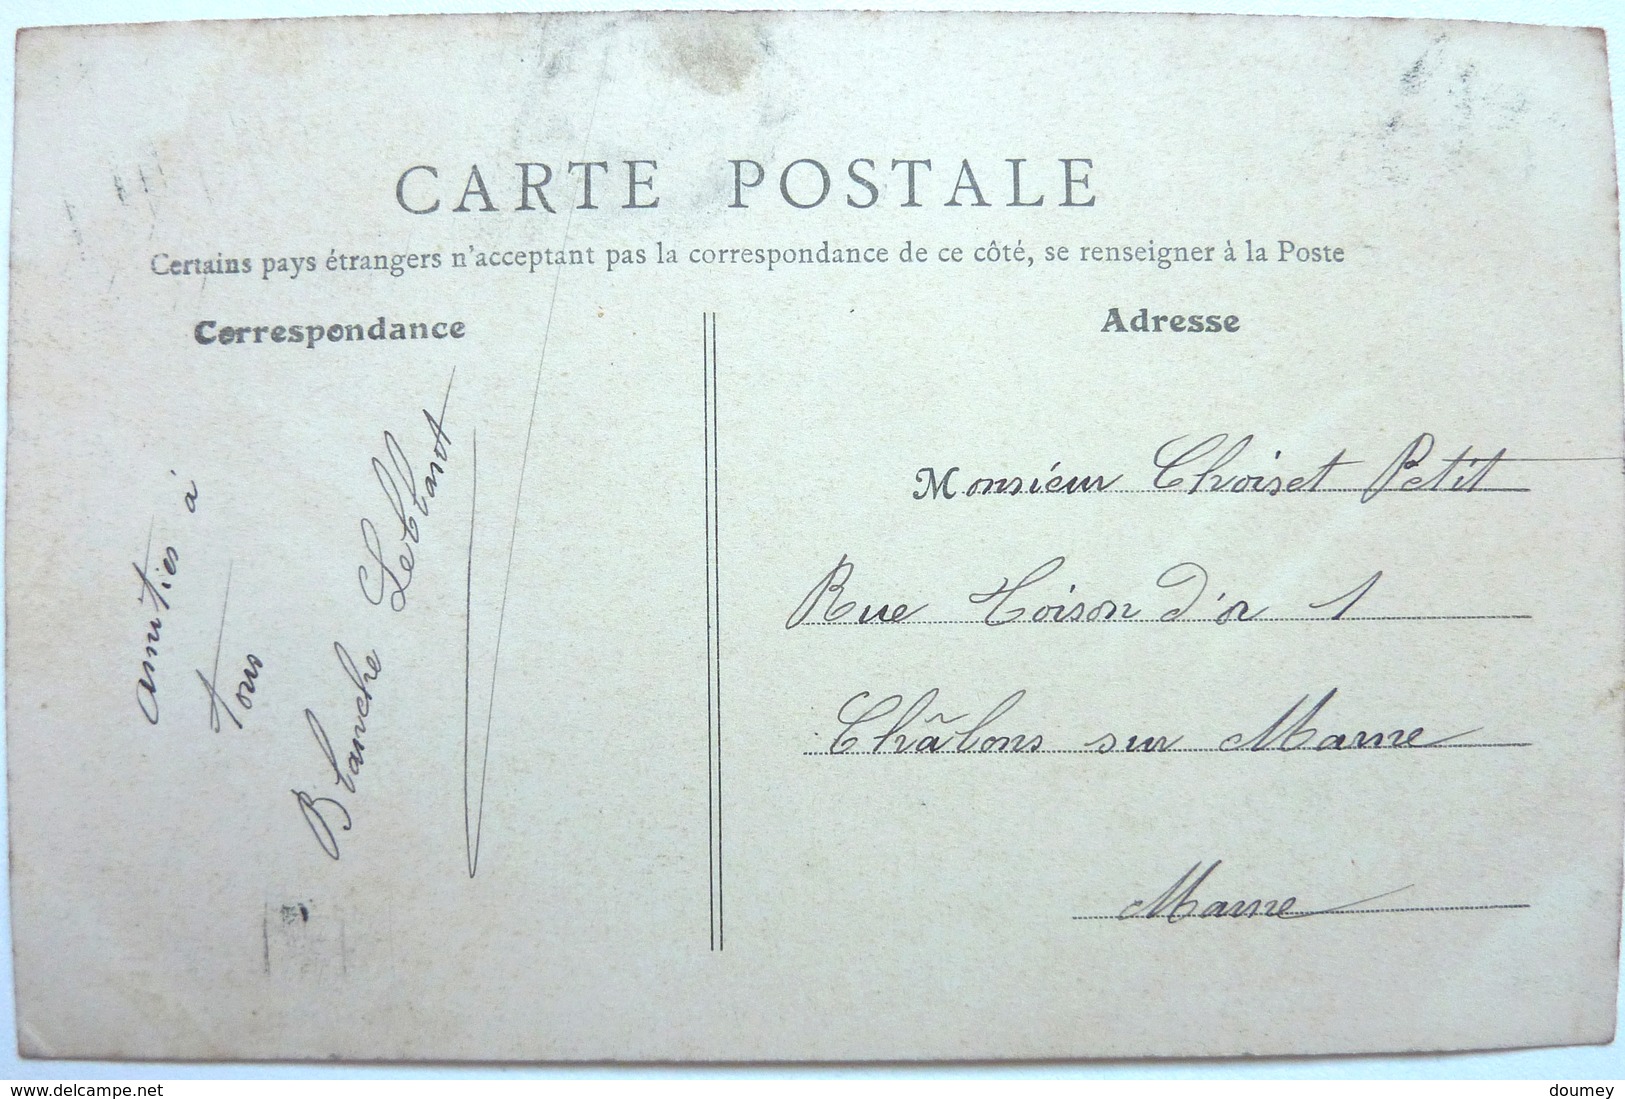 CARTE POSTALE
Certains pays étrangers n'acceptant pas la correspondance de ce côté, se renseigner à la Poste
Correspondance
amitiés à
tous
Blanche Leblanc
Adresse
Monsieur Choiset Petit
Rue Toison d'or 1
Châlons sur Marne
Marne
delcampe.net
doumey